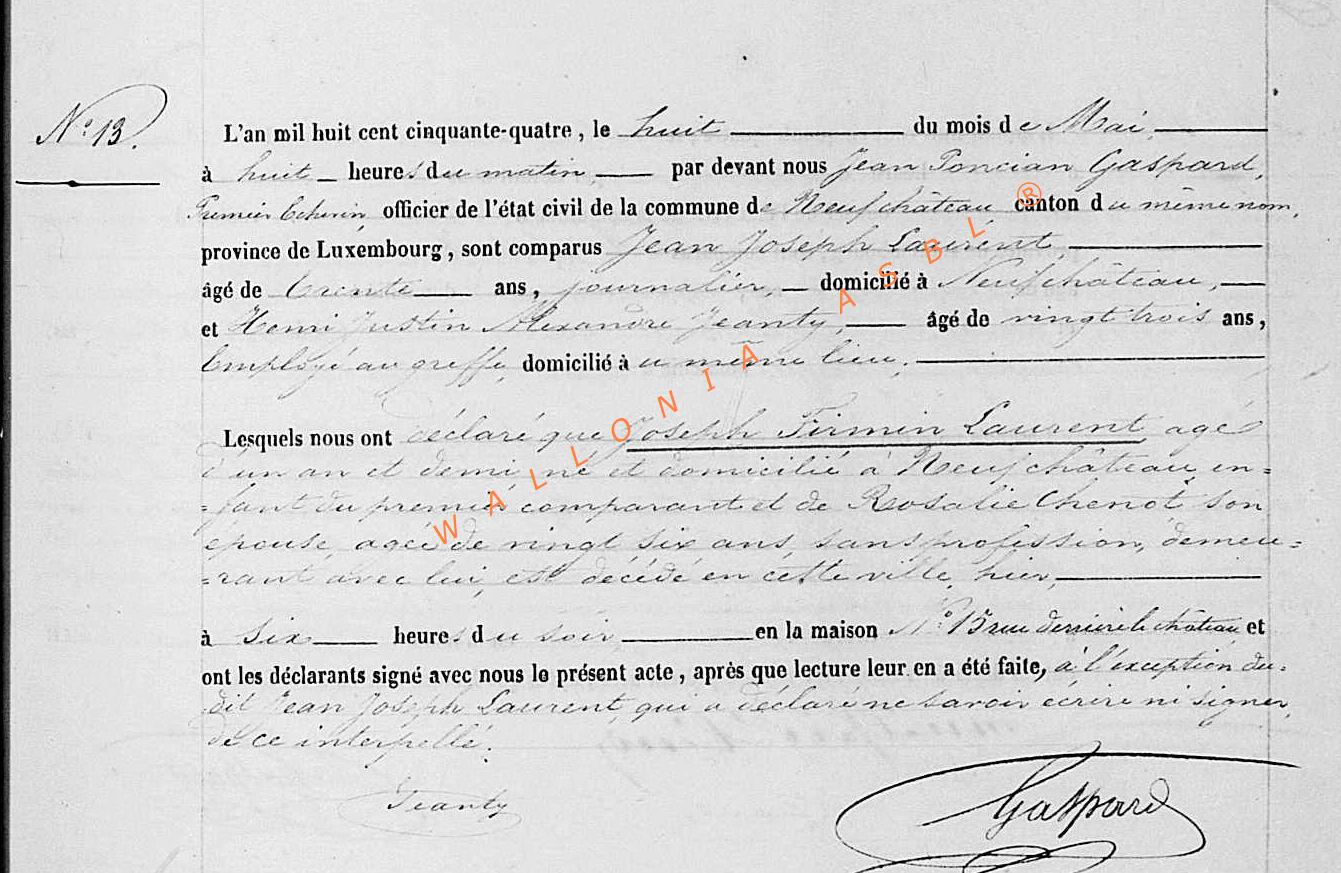 N.º 13.
L'an mil huit cent cinquante-quatre, le huit du mois de Mai
à huit heures du matin, par devant nous Jean Poncian Gaspard,
Premier Echevin, officier de l'état civil de la commune de Neufchâteau canton du même nom,
province de Luxembourg, sont comparus Jean Joseph Laurent,
âgé de trente ans, journalier, domicilié à Neufchâteau,
et Henri Justin Alexandre Jeanty, âgé de vingt trois ans,
Employé au greffe, domicilié à u même lieu,
Lesquels nous ont déclaré que Joseph Firmin Laurent agé
d'un an et demi né et domicilié à Neufchâteau, en=
=fant du premier comparant et de Rosalie Chenot son
epouse, agée de vingt six ans, sans profission, demeu=
=rant avec lui, est décédé en cette ville, hier,
à six heures du soir, en la maison N.º 15 rue derrière le château et
ont les déclarants signé avec nous le présent acte, après que lecture leur en a été faite, à l'exception du=
dit Jean Joseph Laurent, qui a déclaré ne savoir écrire ni signer,
de ce interpellé.
Jeanty
Gaspard
WALLONIA ASBL ®